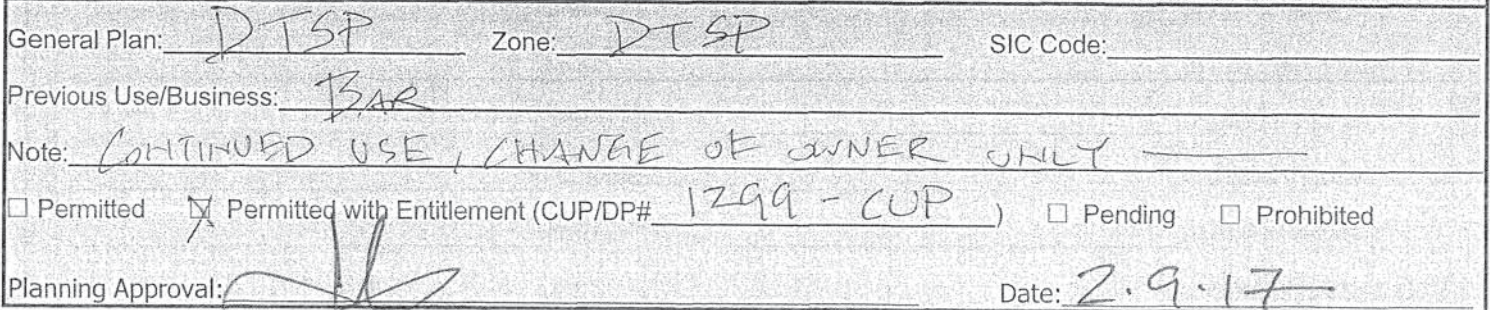 General Plan: DTSP Zone: DTSP SIC Code:
Previous Use/Business: BAR
Note: CONTINUED USE, CHANGE OF OWNER ONLY
☐ Permitted ☒ Permitted with Entitlement (CUP/DP# 1299 - CUP ) ☐ Pending ☐ Prohibited
Planning Approval: Date: 2.9.17